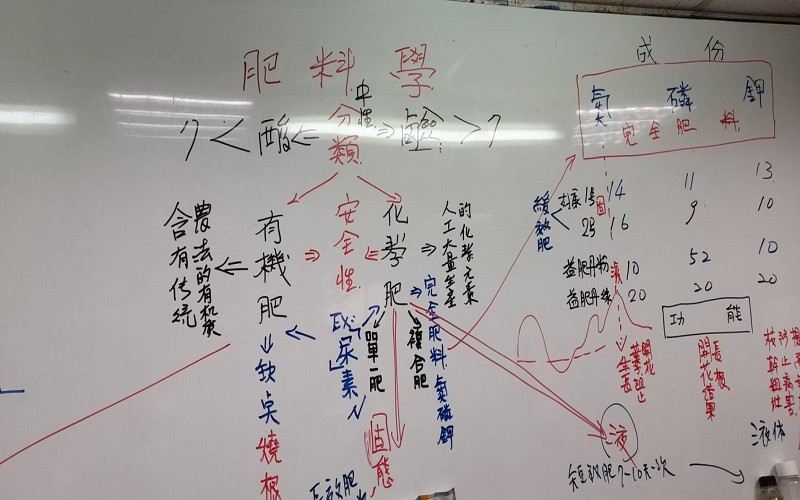 肥料學
成份
氮 磷 鉀
完全肥料
7 < 酸 ⇐ 中性 ⇒ 鹼 > 7
分類
有機肥
安全性
化學肥
農法的有機質
含有傳統
人工大量生產
的化學元素
緩效肥
1號 固 14 11 13
2号 16 9 10
益肥丹粉 液 10 52 10
益肥丹綠 20 20 20
功能
缺点 燒根
EX:
尿素 N
單一肥
複合肥
完全肥料 氮磷鉀
固態
長效肥
液
短效肥 7-10天一次
液体
開花
生長
開花結果
長根
枝幹粗壯
防止病害